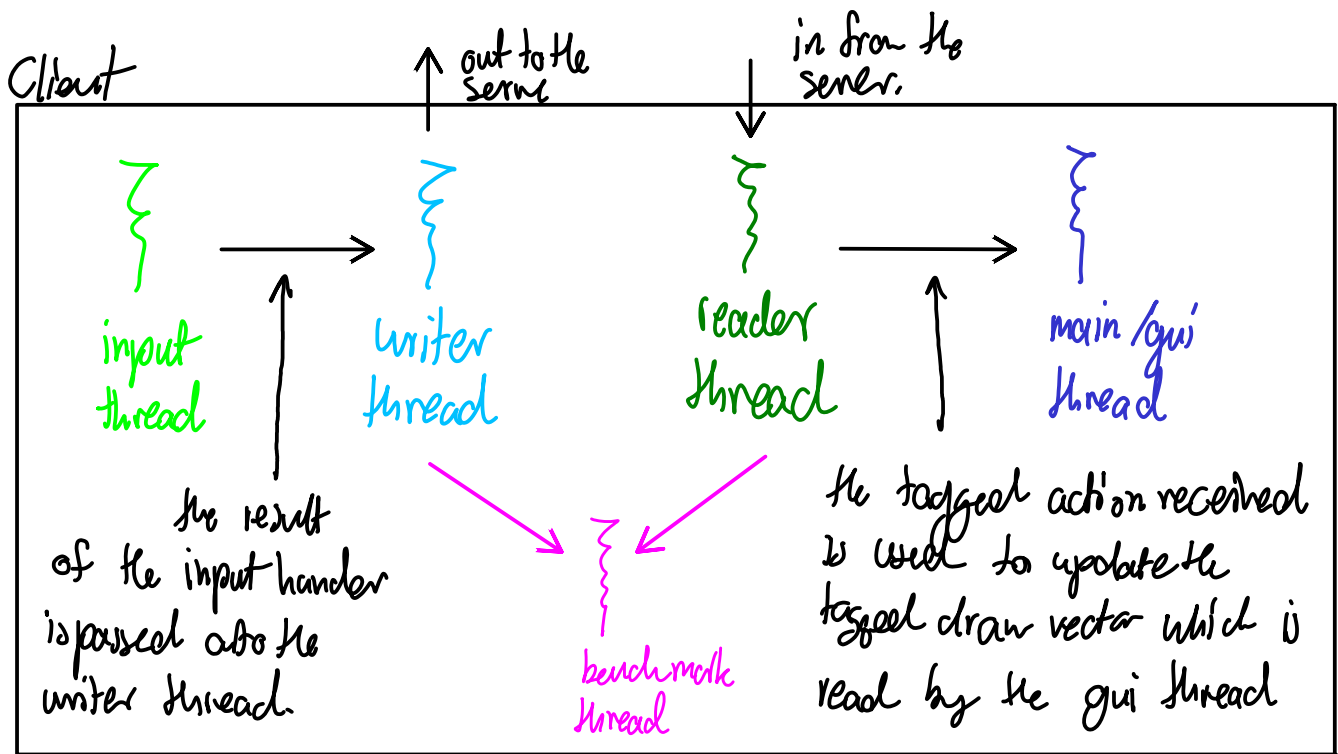 Client
out to the
serve
in from the
server.
input
thread
writer
thread
reader
thread
main/gui
thread
the result
of the input hander
is passed onto the
writer thread.
benchmark
thread
the tagged action received
is used to update the
tagged draw vector which is
read by the gui thread